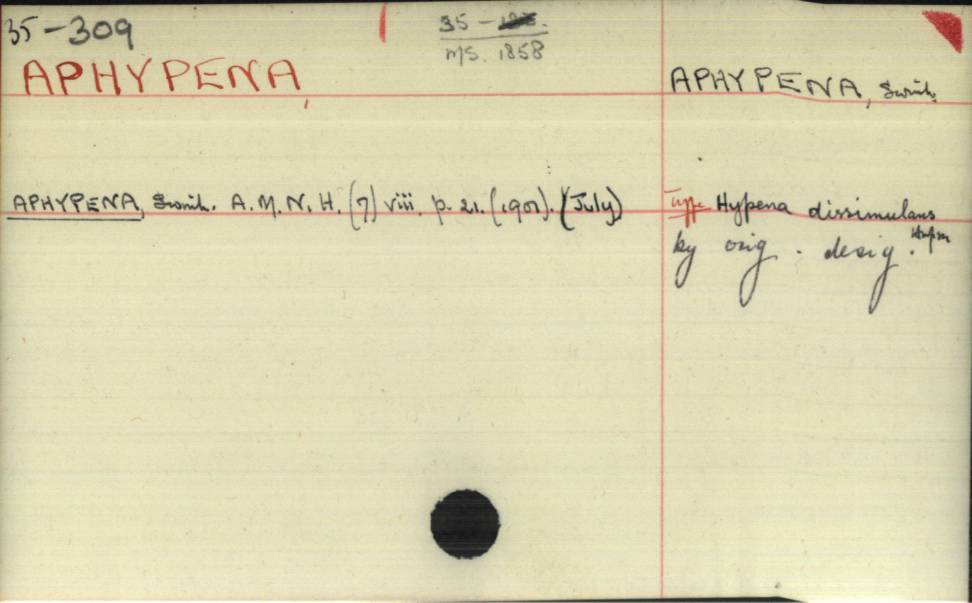 35-309
35-
MS. 1858
APHYPENA,
APHYPENA, Swinh.
APHYPENA, Swinh. A.M.N.H. (7) viii. p. 21. (1901). (July)
Type Hypena dissimulans
Hmpsn
by orig. desig.